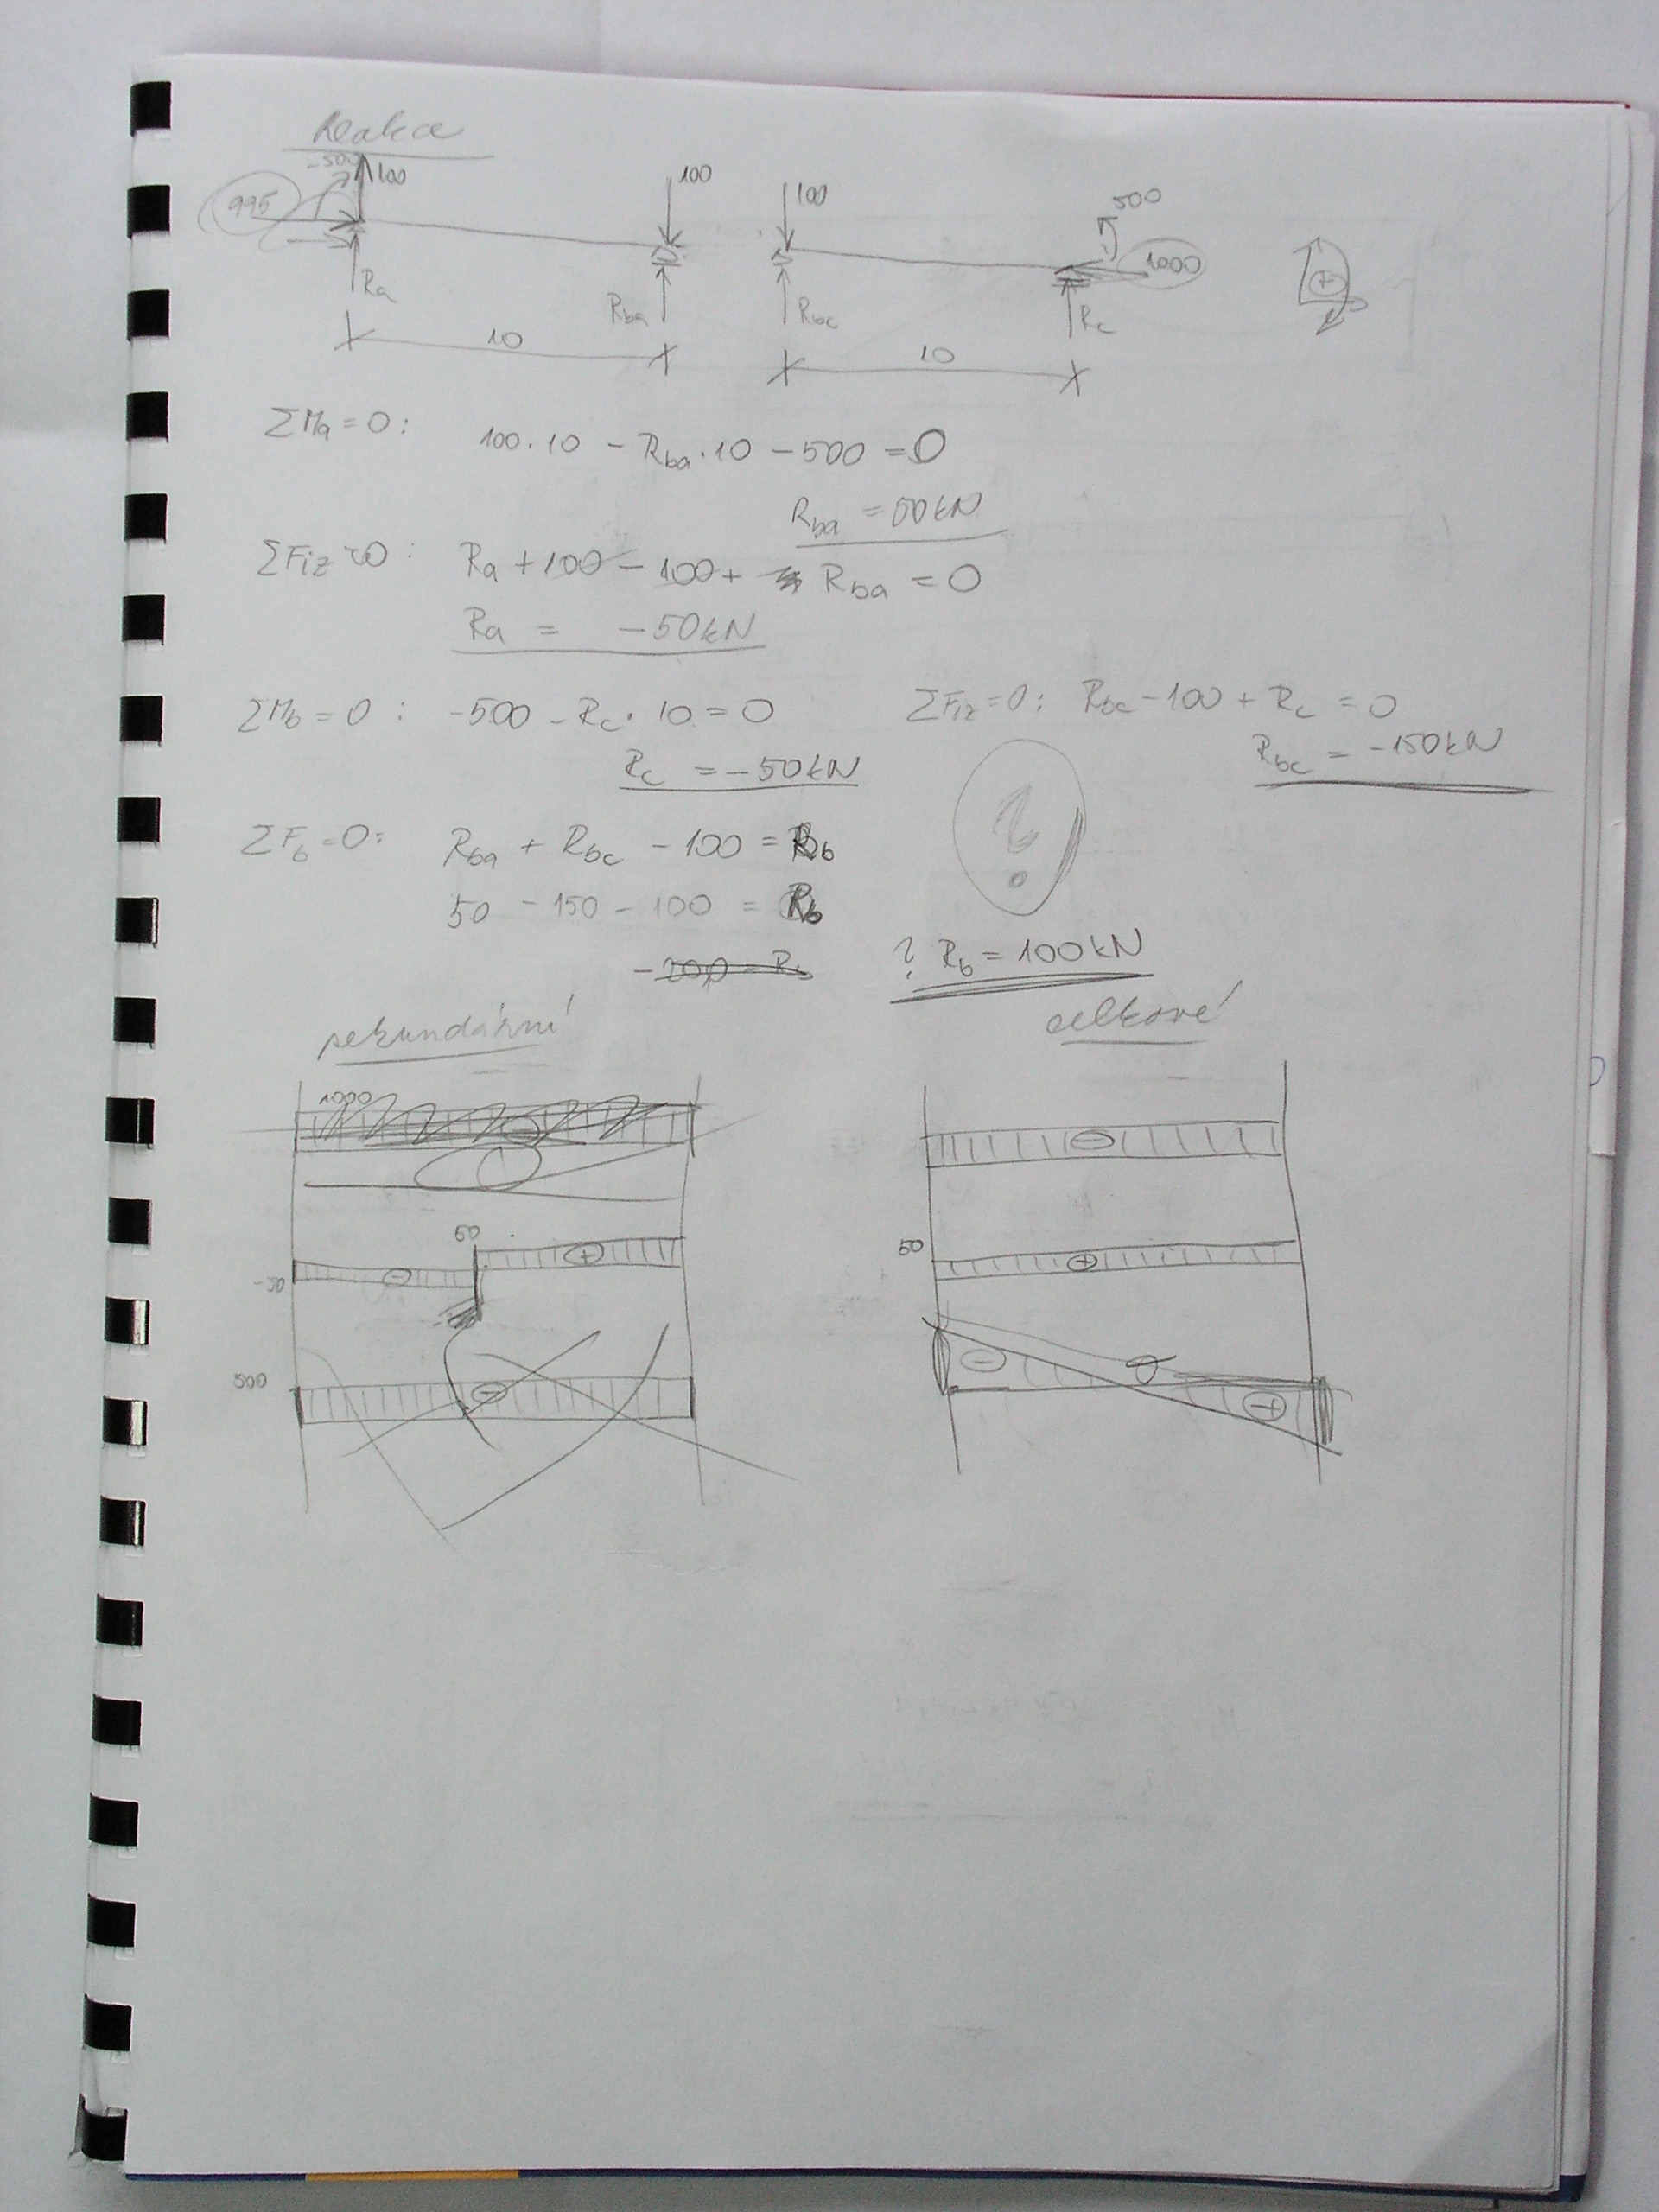 Reakce
-500 100 100 100 500
995 1000
Ra Rba Rbc Rc +
10 10
ΣMa = 0 : 100·10 - Rba·10 - 500 = 0
Rba = 50kN
ΣFiz = 0 : Ra + 100 - 100 + Rba = 0
Ra = -50kN
ΣMb = 0 : -500 - Rc · 10 = 0 ΣFiz = 0 : Rbc - 100 + Rc = 0
Rc = -50kN Rbc = -150kN
?
ΣFb = 0 : Rba + Rbc - 100 = Rb
50 - 150 - 100 = Rb
-200 = Rb ? Rb = 100kN
sekundární celkové
1000
- -
50 + 50 +
-50 -
500 - - +